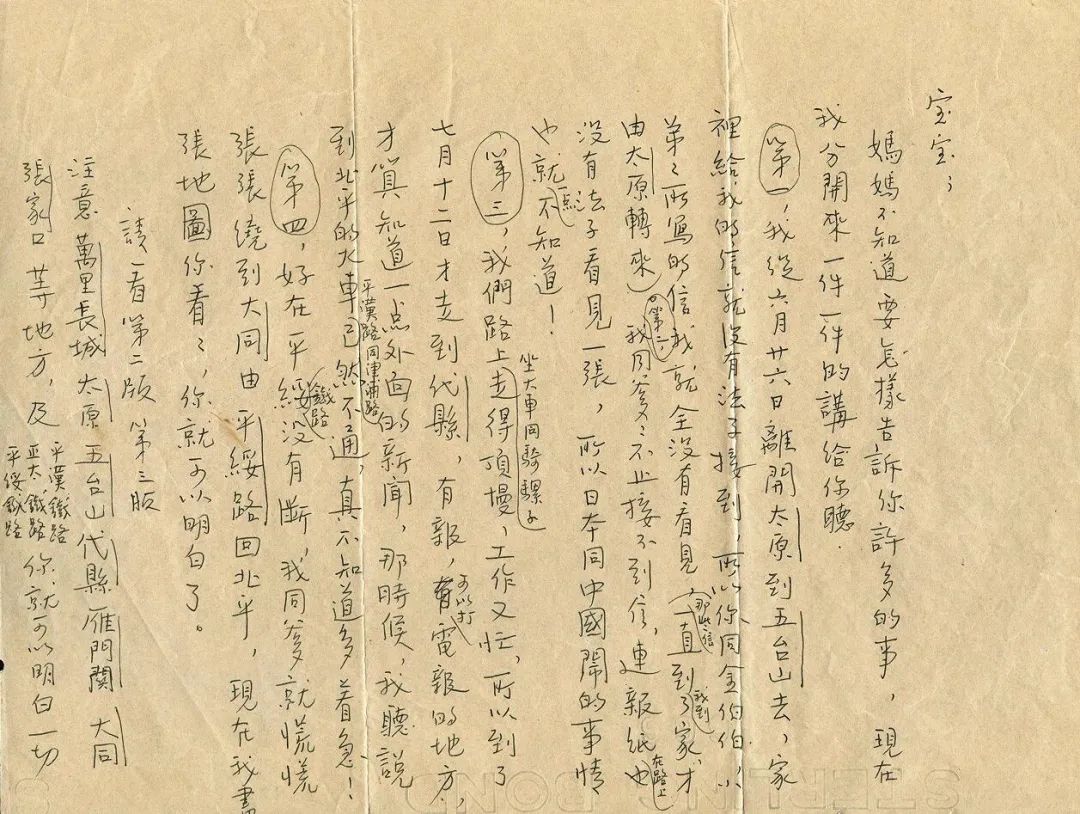 宝宝；
媽媽不知道要怎樣告訴你許多的事，現在
我分開來一件一件的講給你聽.
第一，我從六月廿六日離開太原到五台山去，家
裡給我的信就沒有法子接到，所以你同金伯伯、小
弟弟所寫的信我就全沒有看見（那些信一直到我到了家，才
由太原轉來）。第二我同爹爹不止接不到信，連報紙也在路上
没有法子看見一張，所以日本同中國鬧的事情
也就一点不知道！
第三，我們路上坐大車同騎騾子走得頂慢，工作又忙，所以到了
七月十二日才走到代縣，有報，可以打電報的地方，
才算知道一点外面的新聞，那時候，我聽說
到北平的火車，平漢路同津浦路已然不通，真不知道多着急！
第四，好在平綏鐵路没有断，我同爹爹就慌慌
張張繞到大同由平綏路回北平，現在我畫
張地圖你看看，你就可以明白了。
請看第二版 第三版
注意萬里長城 太原 五台山 代縣 雁門關 大同
張家口等地方，及平漢鐵路 正太鐵路 平綏鐵路 你就可以明白一切